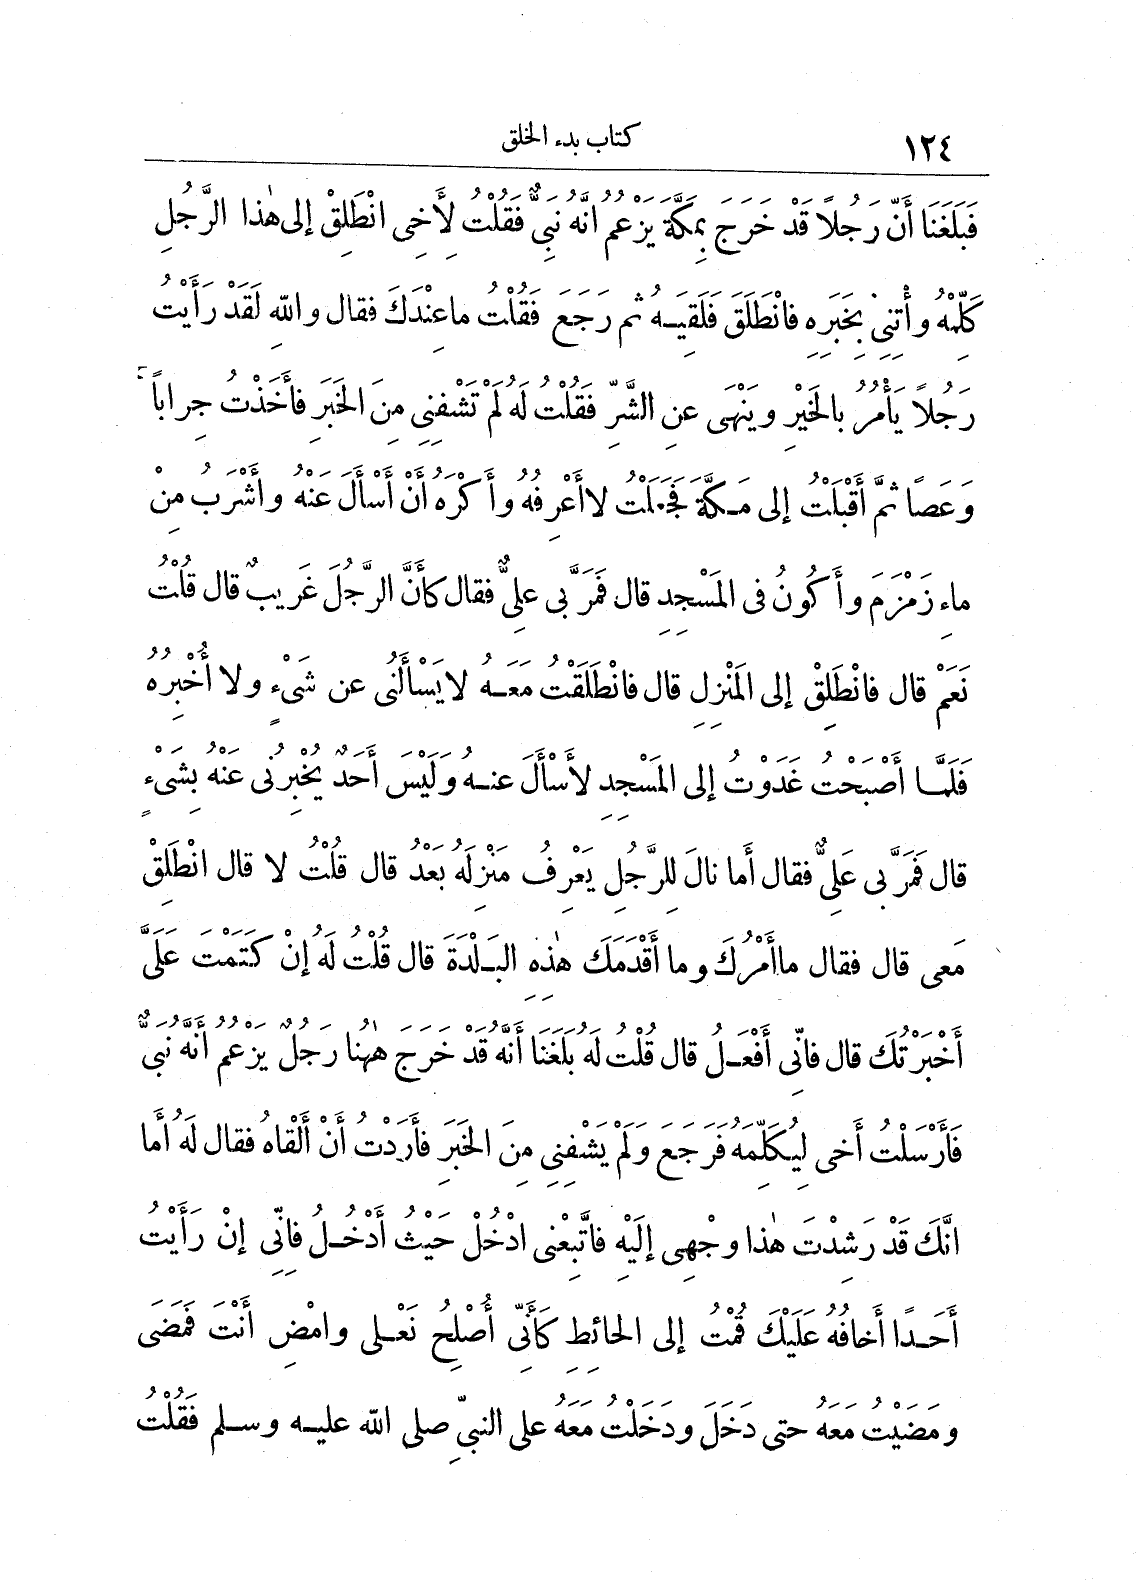 ١٢٤ كتاب بدء الخلق
فَبَلَغَنَا أَنَّ رَجُلاً قَدْ خَرَجَ بِمَكَّةَ يَزْعُمُ أَنَّهُ نَبِيٌّ فَقُلْتُ لِأَخِى انْطَلِقْ إلى هٰذا الرَّجُلِ
كَلِّمْهُ وأْتِنِى بِخَبَرِهِ فانْطَلَقَ فَلَقِيَـهُ ثم رَجَعَ فَقُلْتُ ما عِنْدَكَ فقال واللهِ لَقَدْ رَأَيْتُ
رَجُلاً يَأْمُرُ بالخَيْرِ ويَنْهَى عنِ الشَّرِّ فَقُلْتُ لَهُ لَمْ تَشْفِنِى مِنَ الخَبَرِ فأَخَذْتُ جِراباً
وَعَصاً ثمَّ أَقْبَلْتُ إلى مَـكَّةَ فَجَعَلْتُ لا أَعْرِفُهُ وأَكْرَهُ أنْ أسْأَلَ عَنْهُ وأشْرَبُ مِنْ
ماءِ زَمْزَمَ وأَكُونُ فى المَسْجِدِ قال فَمَرَّ بِى علِيٌّ فقال كأَنَّ الرَّجُلَ غَرِيبٌ قال قُلْتُ
نَعَمْ قال فانْطَلِقْ إلى المَنْزِلِ قال فانْطَلَقْتُ مَعَـهُ لا يَسْأَلُنِى عن شَىْءٍ ولا أُخْبِرُهُ
فَلَمَّـا أَصْبَحْتُ غَدَوْتُ إلى المَسْجِدِ لأَسْأَلَ عنـهُ ولَيْسَ أَحَدٌ يُخْبِرُنِى عنْهُ بِشَىْءٍ
قال فَمَرَّ بِى عَلِيٌّ فقال أَما نالَ لِلرَّجُلِ يَعْرِفُ مَنْزِلَهُ بَعْدُ قال قُلْتُ لا قال انْطَلِقْ
مَعِى قال فقال ما أَمْرُكَ وما أَقْدَمَكَ هٰذِهِ البَـلْدَةَ قال قُلْتُ لَهُ إنْ كَتَمْتَ عَلَىَّ
أَخْبَرْتُكَ قال فانِّى أَفْعَـلُ قال قُلْتُ لَهُ بَلَغَنَا أَنَّهُ قَدْ خَرَجَ هٰهُنا رَجُلٌ يَزْعُمُ أَنَّهُ نَبِىٌّ
فَأَرْسَلْتُ أَخِى لِيُـكَلِّمَهُ فَرَجَعَ ولَمْ يَشْفِنِى مِنَ الخَبَرِ فأَرَدْتُ أَنْ أَلْقاهُ فقال لَهُ أَما
انَّكَ قَدْ رَشِدْتَ هٰذا وجْهِى إلَيْهِ فاتَّبِعْنِى ادْخُلْ حَيْثُ أَدْخُـلُ فانِّى إنْ رَأَيْتُ
أَحَـداً أَخافُهُ عَلَيْكَ قُمْتُ إلى الحائِطِ كَأَنِّى أُصْلِحُ نَعْـلِى وامْضِ أَنْتَ فَمَضَى
ومَضَيْتُ مَعَهُ حتى دَخَلَ ودَخَلْتُ مَعَهُ على النبِيِّ صلى الله عليـه وسـلم فَقُلْتُ